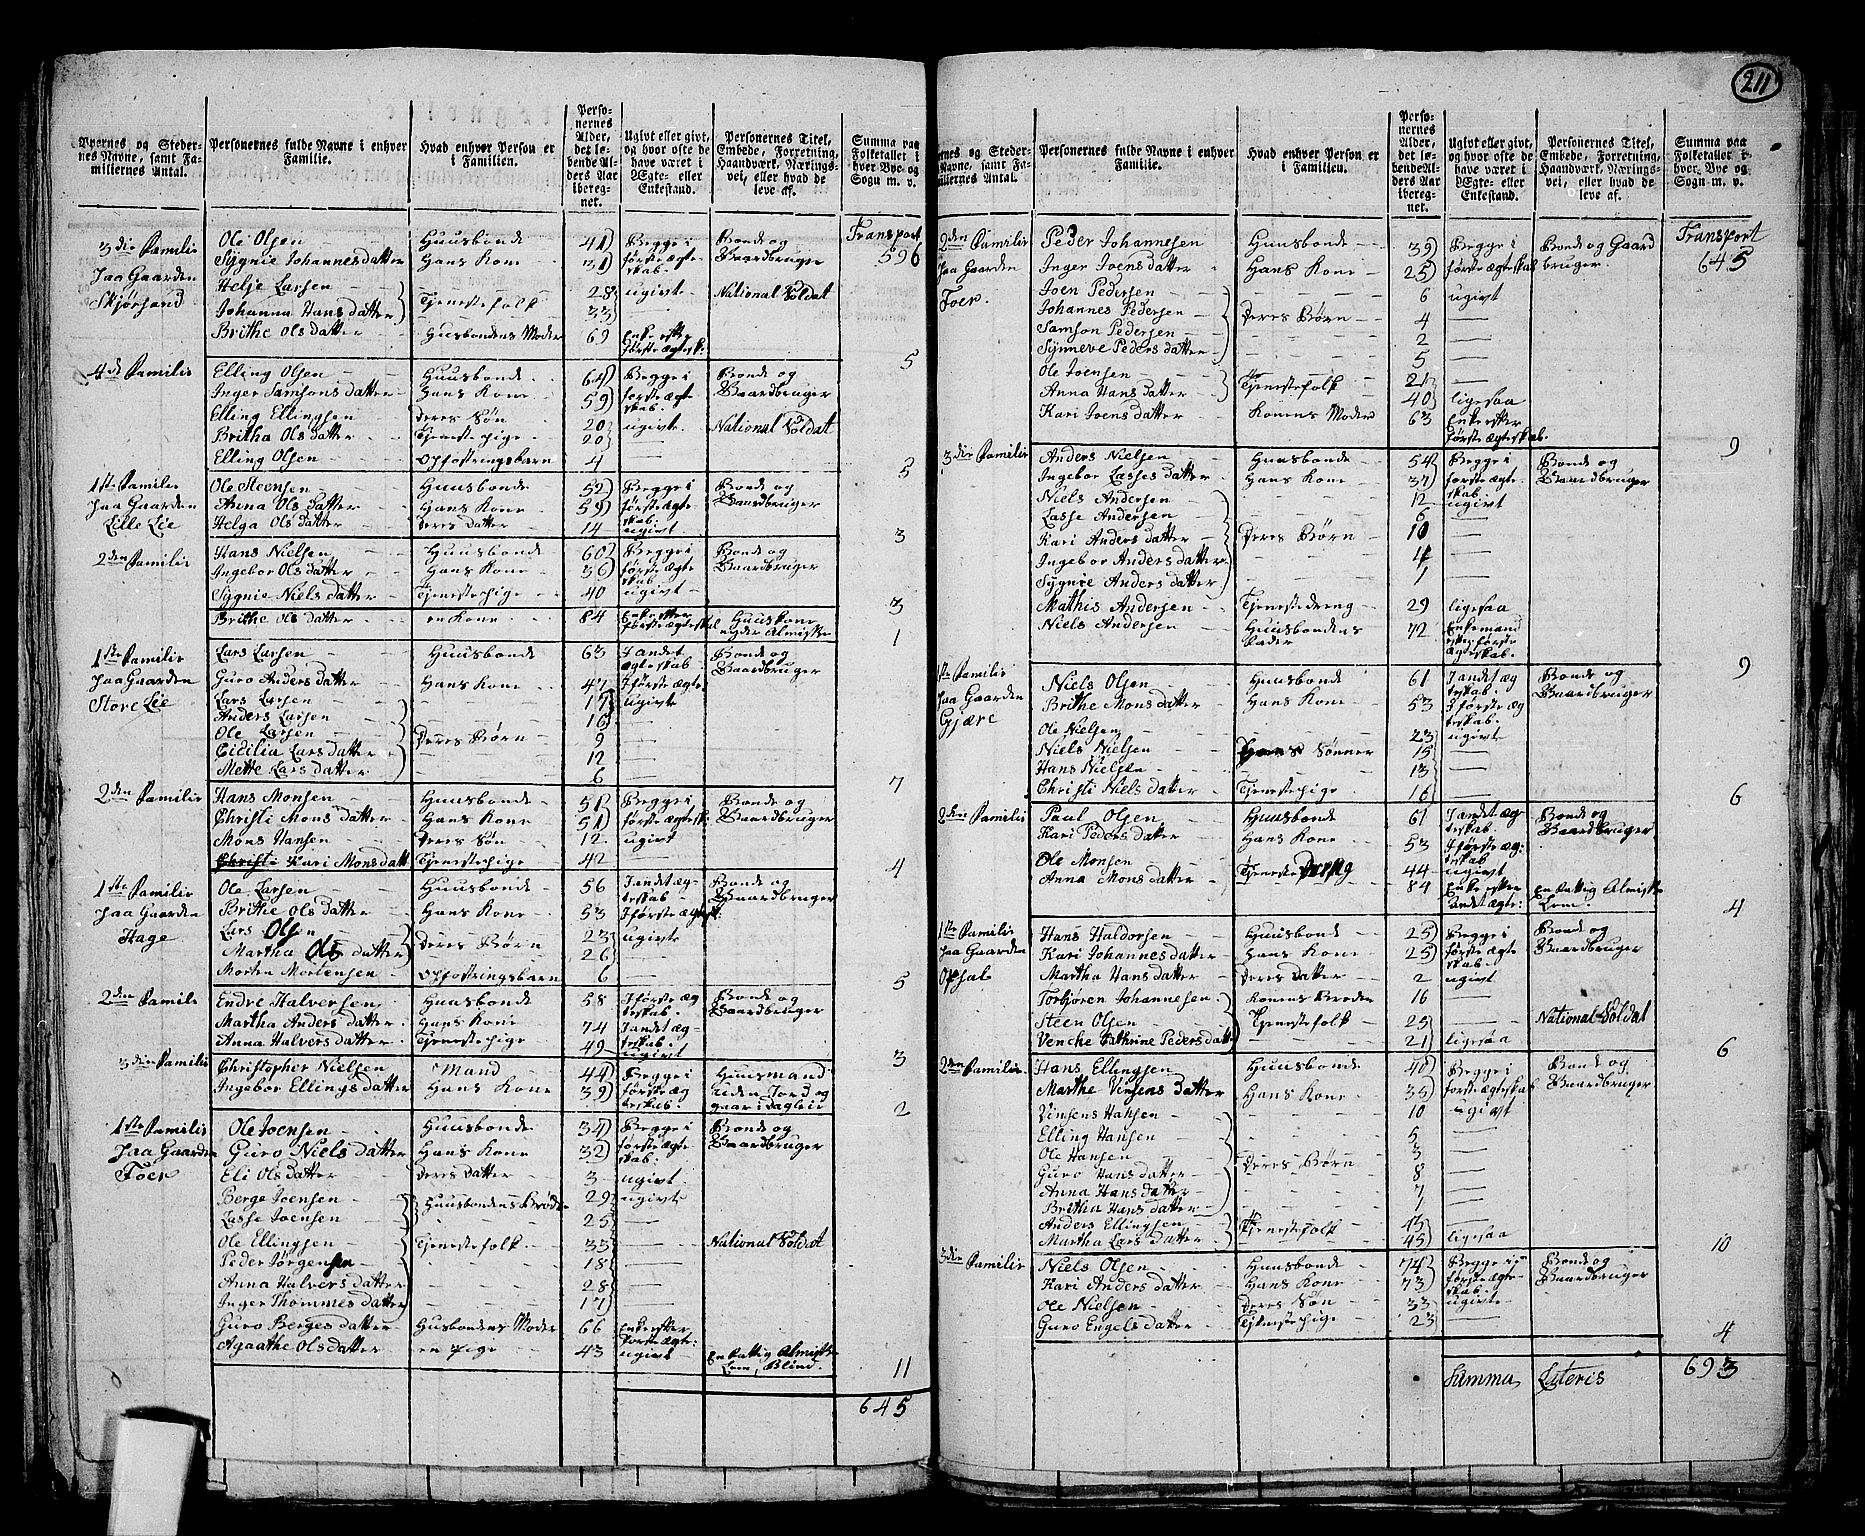 211
Byernes og Stedernes Navne, samt Familiernes Antal.
Personernes fulde Navne i enhver Familie.
Hvad enhver Person er i Familien.
Personernes Alder, det løbende Alders Aar iberegnet.
Ugivt eller givt, og hvor ofte de have været i Ægte- eller Enkestand.
Personernes Titel, Embede, Forretning, Haandværk, Næringsvei, eller hvad de leve af.
Summa paa Folketallet i hver Bye og Sogn m. v.
Transport 596
3die Familie Paa Gaarden Skjørsand
Ole Olsen Huusbonde 41 Begge i første ægteskab. Bonde og Gaardbruger
Sygnie Johannesdatter Hans Kone 31
Helje Larsen Tjenestefolk 28 ugivt National Soldat
Johanna Hansdatter 33
Brithe Olsdatter Husbondens Moder 69 Enke efter første ægtesk:
5
4de Familie
Elling Olsen Huusbonde 64 Begge i første ægteskab. Bonde og Gaardbruger
Inger Samsonsdatter Hans Kone 59
Elling Ellingsen Deres Søn 20 ugivt National Soldat
Britha Olsdatter Tjenestepige 20
Elling Olsen Opfostringsbarn 4
5
1ste Familie Paa Gaarden Lille Lie
Ole Steensen Huusbonde 52 Begge i første ægteskab. Bonde og Gaardbruger
Anna Olsdatter Hans Kone 59
Helga Olsdatter Deres datter 14 ugivt
3
2den Familie
Hans Nielsen Huusbonde 60 Begge i første ægteskab Bonde og Gaardbruger
Ingebor Olsdatter Hans Kone 36
Sygnie Nielsdatter Tjenestepige 40 ugivt
3
Brithe Olsdatter en Kone 84 Enke efter første ægteskab Huuskone nyder Almisse
1
1ste Familie Paa Gaarden Store Lie
Lars Larsen Huusbonde 63 I andet ægteskab. Bonde og Gaardbruger
Guro Andersdatter Hans Kone 47 I første ægte:
Lars Larsen 17 ugivt
Anders Larsen 16
Ole Larsen Deres Børn 9
Cicilia Larsdatter 12
Mette Larsdatter 6
7
2den Familie
Hans Monsen Huusbonde 51 Begge i første ægtesk: Bonde og Gaardbruger
Christi Monsdatter Hans Kone 51
Mons Hansen Deres Søn 12 ugivt
Kari Monsdatt Tjenestepige 42
4
1ste Familie Paa Gaarden Hage
Ole Larsen Huusbonde 56 I andet ægteskab Bonde og Gaardbruger
Brithe Olsdatter Hans Kone 53 I første ægtesk:
Lars Olsen Deres Børn 23 ugivt
Martha Olsdatter 26
Morten Mortensen Opfostringsbarn 6
5
2den Famile
Endre Halversen Huusbonde 58 I første ægteskab. Bonde og Gaardbruger
Martha Andersdatter Hans Kone 74 I andet ægteskab.
Anna Halversdatter Tjenestepige 49 ugivt
3
3die Familie
Christopher Nielsen Mand 44 Begge i første ægteskab. Huusmand uden Jord og gaar i Dagleie
Ingebor Ellingsdatter Hans Kone 39
2
1ste Familie Paa Gaarden Foer
Ole Joensen Huusbonde 34 Begge i første ægteskab. Bonde og Gaardbruger
Guro Nielsdatter Hans Kone 32
Eli Olsdatter Deres datter 3 ugivt
Berge Joensen Huusbondens Brødre 29 ugivt
Lasse Joensen 25
Ole Ellingsen Tjenestefolk 33 National Soldat
Peder Jørgensen 18
Anna Halversdatter 28
Inger Thommesdatter 17
Guro Bergesdatter Husbondens Moder 66 Enke efter første ægte:
Agaathe Olsdatter en pige 43 ugivt En fattig Almisse Lem, Blind.
11
645
Byernes og Stedernes Navne, samt Familiernes Antal.
Personernes fulde Navne i enhver Familie.
Hvad enhver Person er i Familien.
Personernes Alder, det løbende Alders Aar iberegnet.
Ugivt eller givt, og hvor ofte de have været i Ægte- eller Enkestand.
Personernes Titel, Embede, Forretning, Haandværk, Næringsvei, eller hvad de leve af.
Summa paa Folketallet i hver Bye og Sogn m. v.
Transport 645
2den Familie Paa Gaarden Foer.
Peder Johannesen Huusbonde 39 Begge i første ægteskab Bonde og Gaardbruger.
Inger Joensdatter Hans Kone 25
Joen Pedersen 6 ugivt
Johannes Pedersen Deres Børn 4
Samson Pedersen 2
Synneve Pedersdatter 5
Ole Joensen Tjenestefolk 21
Anna Hansdatter 40 ligesaa
Kari Joensdatter Konens Moder 63 Enke efter første ægteskab.
9
3die Familie
Anders Nielsen Huusbonde 54 Begge i første ægteskab Bonde og Gaardbruger
Ingebor Lassesdatter Hans Kone 37
Niels Andersen 12 ugivt
Lasse Andersen 6
Kari Andersdatter Deres Børn 10
Ingebor Andersdatter 4
Sygnie Andersdatter 1
Mathis Andersen Tjenestedreng 29 ligesaa
Niels Andersen Huusbondens Fader 72 Enkemand efter første ægteskab.
9
1ste Familie Paa Gaarden Gjære
Niels Olsen Huusbonde 61 I andet ægteskab. Bonde og Gaardbruger
Brithe Monsdatter Hans Kone 53 I første ægteskab.
Ole Nielsen 23 ugivt
Niels Nielsen Hans Sønner 15
Hans Nielsen 13
Christi Nielsdatter Tjenestepige 16
6
2den Familie
Paul Olsen Huusbonde 61 I andet ægteskab. Bonde og Gaardbruger
Kari Pedersdatter Hans Kone 53 I første ægteskab
Ole Monsen Tjenestedreng 44 ugivt
Anna Monsdatter 84 Enke efter andet ægte: En fattig Almisse Lem.
4
1ste Familie Paa Gaarden Opsal
Hans Haldorsen Huusbonde 25 Begge i første ægteskab. Bonde og Gaardbruger
Kari Johannesdatter Hans Kone 25
Martha Hansdatter Deres datter 2 ugivt
Torbjøren Johannesen Konens Broder 16
Steen Olsen Tjenestefolk 25 National Soldat
Venche Cathrine Pedersdatt 21 ligesaa
6
2den Familie.
Hans Ellingsen Huusbonde 40 Begge i første ægteskab Bonde og Gaardbruger
Marthe Vinsensdatter Hans Kone 35
Vinsens Hansen 10 ugivt
Elling Hansen 5
Ole Hansen 3
Guro Hansdatter Deres Børn 8
Anna Hansdatter 7
Britha Hansdatter 1
Anders Ellingsen Tjenestefolk 13
Martha Larsdatter 45 ligesaa
10
3die Familie
Niels Olsen Huusbonde 74 Begge i første ægteskab. Bonde og Gaardbruger
Kari Andersdatter Hans Kone 73
Ole Nielsen Deres Søn 33 ugivt
Guro Engelsdatter Tjenestepige 23
4
Summa Lateris 693